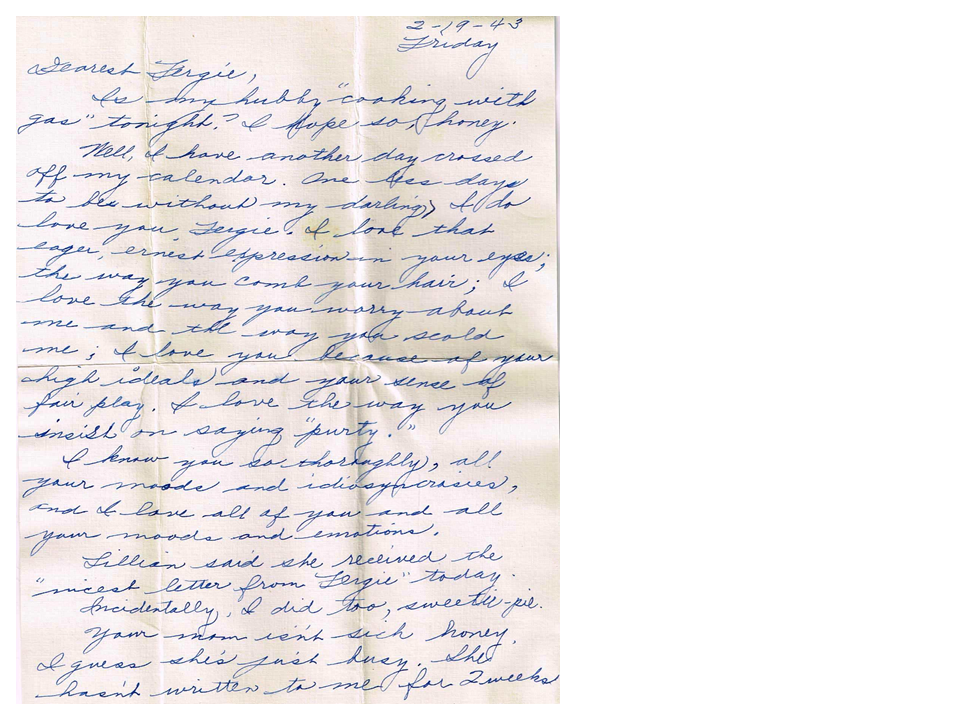 2-19-43
Friday
Dearest Fergie,
Is my hubby "cooking with
gas" tonight? I hope so, honey.
Well, I have another day crossed
off my calendar. One less days
to be without my darling, I do
love you, Fergie. I love that
eager, ernest expression in your eyes;
the way you comb your hair; I
love the way you worry about
me and the way you scold
me; I love you because of your
high ideals and your sense of
fair play. I love the way you
insist on saying "purty."
I know you so thoroughly, all
your moods and idiosyncrasies,
and I love all of you and all
your moods and emotions.
Lillian said she received the
"nicest letter from Fergie" today.
Incidentally, I did too, sweetie-pie.
Your mom isn't sick honey.
I guess she's just busy. She
hasn't written to me for 2 weeks